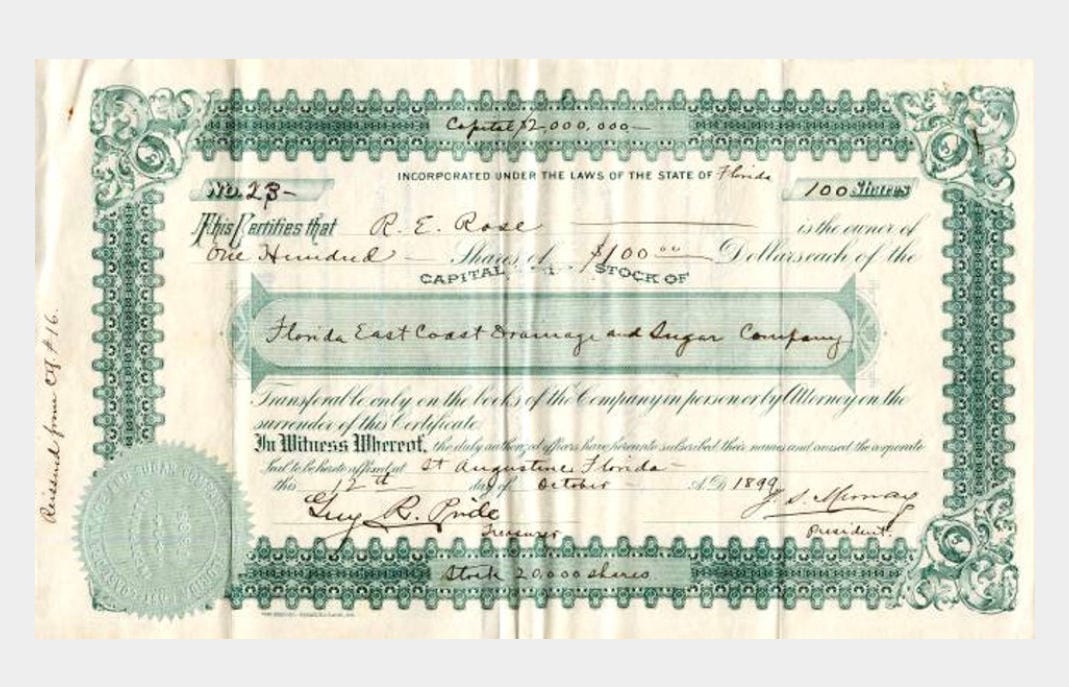 Capital $2,000,000—
INCORPORATED UNDER THE LAWS OF THE STATE OF Florida
No. 23-
100 Shares
This Certifies that R. E. Rose is the owner of
One Hundred — Shares of $100 00 Dollars each of the
CAPITAL STOCK OF
Florida East Coast Drainage and Sugar Company
Transferable only on the books of the Company in person or by Attorney on the
surrender of this Certificate.
In Witness Whereof, the duly authorized officers have hereunto subscribed their names and caused the corporate
Seal to be hereto affixed at St Augustine, Florida-
this 12th day of October A.D. 1899
Guy R. Pride
Treasurer
President.
Stock 20,000 shares
Reissued from Ctf #16.
SUGAR COMPANY